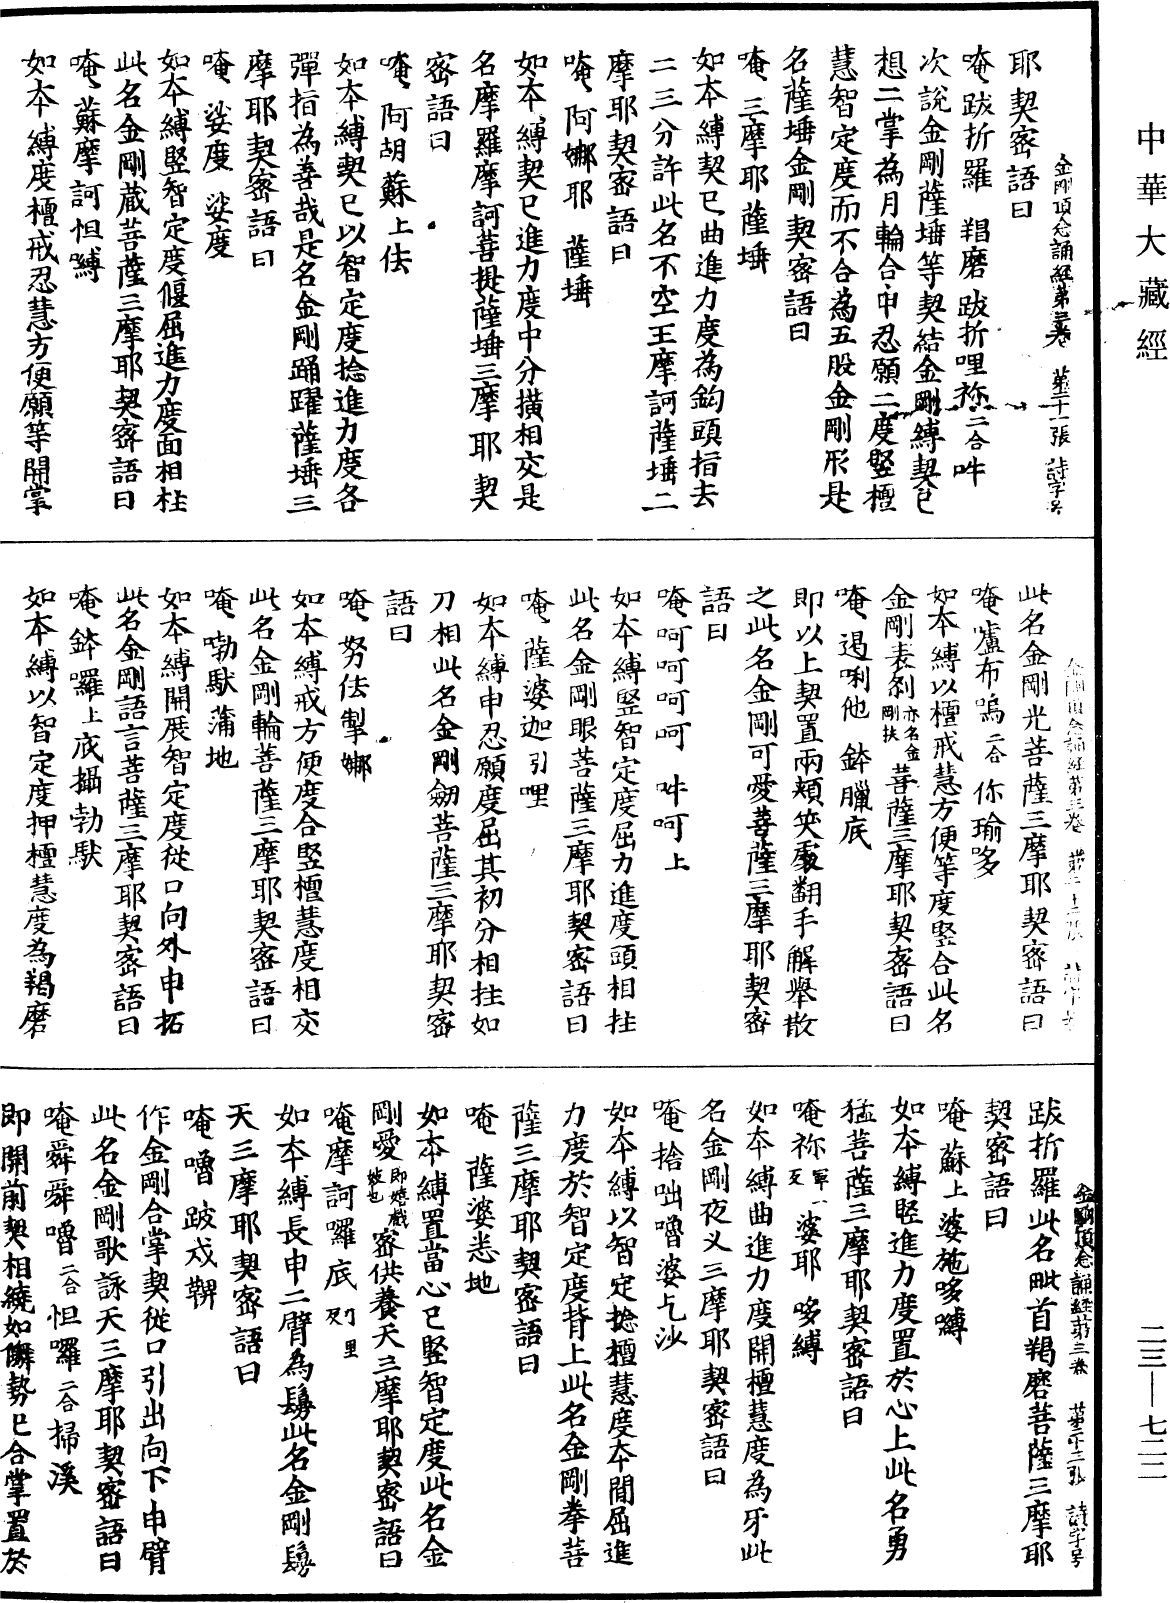 中華大藏經
金剛頂念誦經第三卷 第二十一張 詩字号
耶契密語曰
唵跋折羅 羯磨跋折哩祢二合吽
次說金剛薩埵等契結金剛縛契已
想二掌為月輪合中忍願二度竪檀
慧智定度而不合為五股金剛形是
名薩埵金剛契密語曰
唵三摩耶薩埵
如本縛契已曲進力度為鈎頭指去
二三分許此名不空王摩訶薩埵二
摩耶契密語曰
唵阿娜耶 薩埵
如本縛契已進力度中分撗相交是
名摩羅摩訶菩提薩埵三摩耶契
密語曰
唵阿胡蘇上佉
如本縛契已以智定度捻進力度各
彈指為善哉是名金剛踊躍薩埵三
摩耶契密語曰
唵娑度 娑度
如本縛竪智定度偃屈進力度面相柱
此名金剛藏菩薩三摩耶契密語曰
唵蘇摩訶怛縛
如本縛度檀戒忍慧方便願等開掌
金剛頂念誦經第三卷 第二十二張 詩字号
此名金剛光菩薩三摩耶契密語曰
唵嚧布嗚二合你瑜哆
如本縛以檀戒慧方便等度竪合此名
金剛表刹亦名金剛扶菩薩三摩耶契密語曰
唵遏唎他 鉢臘底
即以上契置兩頰笑處翻手解舉散
之此名金剛可愛菩薩三摩耶契密
語曰
唵呵呵呵呵 吽呵上
如本縛竪智定度屈力進度頭相拄
此名金剛眼菩薩三摩耶契密語曰
唵薩婆迦引哩
如本縛申忍願度屈其初分相拄如
刀相此名金剛劒菩薩三摩耶契密
語曰
唵努佉掣娜
如本縛戒方便度合竪檀慧度相交
此名金剛輪菩薩三摩耶契密語曰
唵勃馱蒲地
如本縛開展智定度從口向外申拓
此名金剛語言菩薩三摩耶契密語曰
唵鉢囉上底攝勃馱
如本縛以智定度押檀慧度為羯磨
金剛頂念誦經第三卷 第二十三張 詩字号
跋折羅此名毗首羯磨菩薩三摩耶
契密語曰
唵蘇上婆施哆縛
如本縛竪進力度置於心上此名勇
猛菩薩三摩耶契密語曰
唵祢 婆耶 哆縛
如本縛曲進力度開檀慧度為牙此
名金剛夜叉三摩耶契密語曰
唵捨咄嚕婆乞沙
如本縛以智定捻檀慧度本間屈進
力度於智定度背上此名金剛拳菩
薩三摩耶契密語曰
唵 薩婆悉地
如本縛置當心已竪智定度此名金
剛愛即嬉戲妓也密供養天三摩耶契密語曰
唵摩訶囉底
如本縛長申二臂為鬘此名金剛鬘
天三摩耶契密語曰
唵嚕跛戍鞞
作金剛合掌契從口引出向下申臂
此名金剛歌詠天三摩耶契密語曰
唵舜舜嚕二合怛囉二合掃溪
即開前契相繞如儛勢已合掌置於
二三—七二二